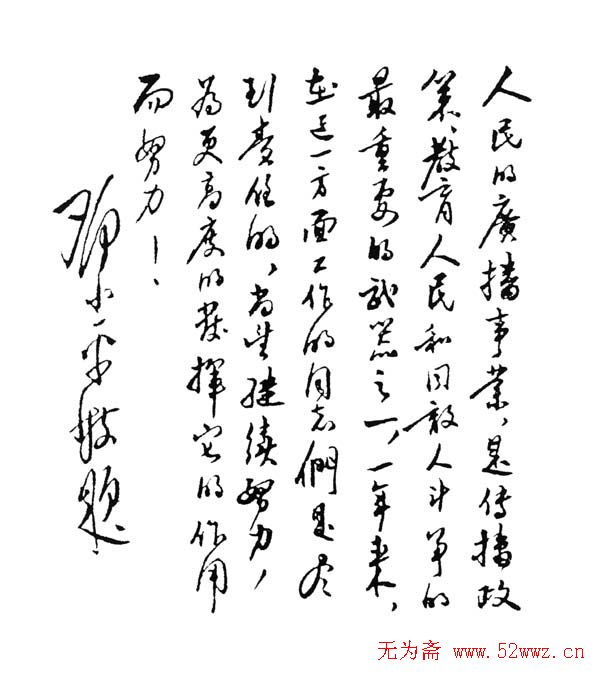 人民的廣播事業，是传播政
策、教育人民和同敌人斗争的
最重要的武器之一，一年来，
在这一方面工作的同志們是尽
到责任的，尚望继续努力，
为更高度的发揮它的作用
而努力！
邓小平敬题
无为斋 www.52wwz.cn